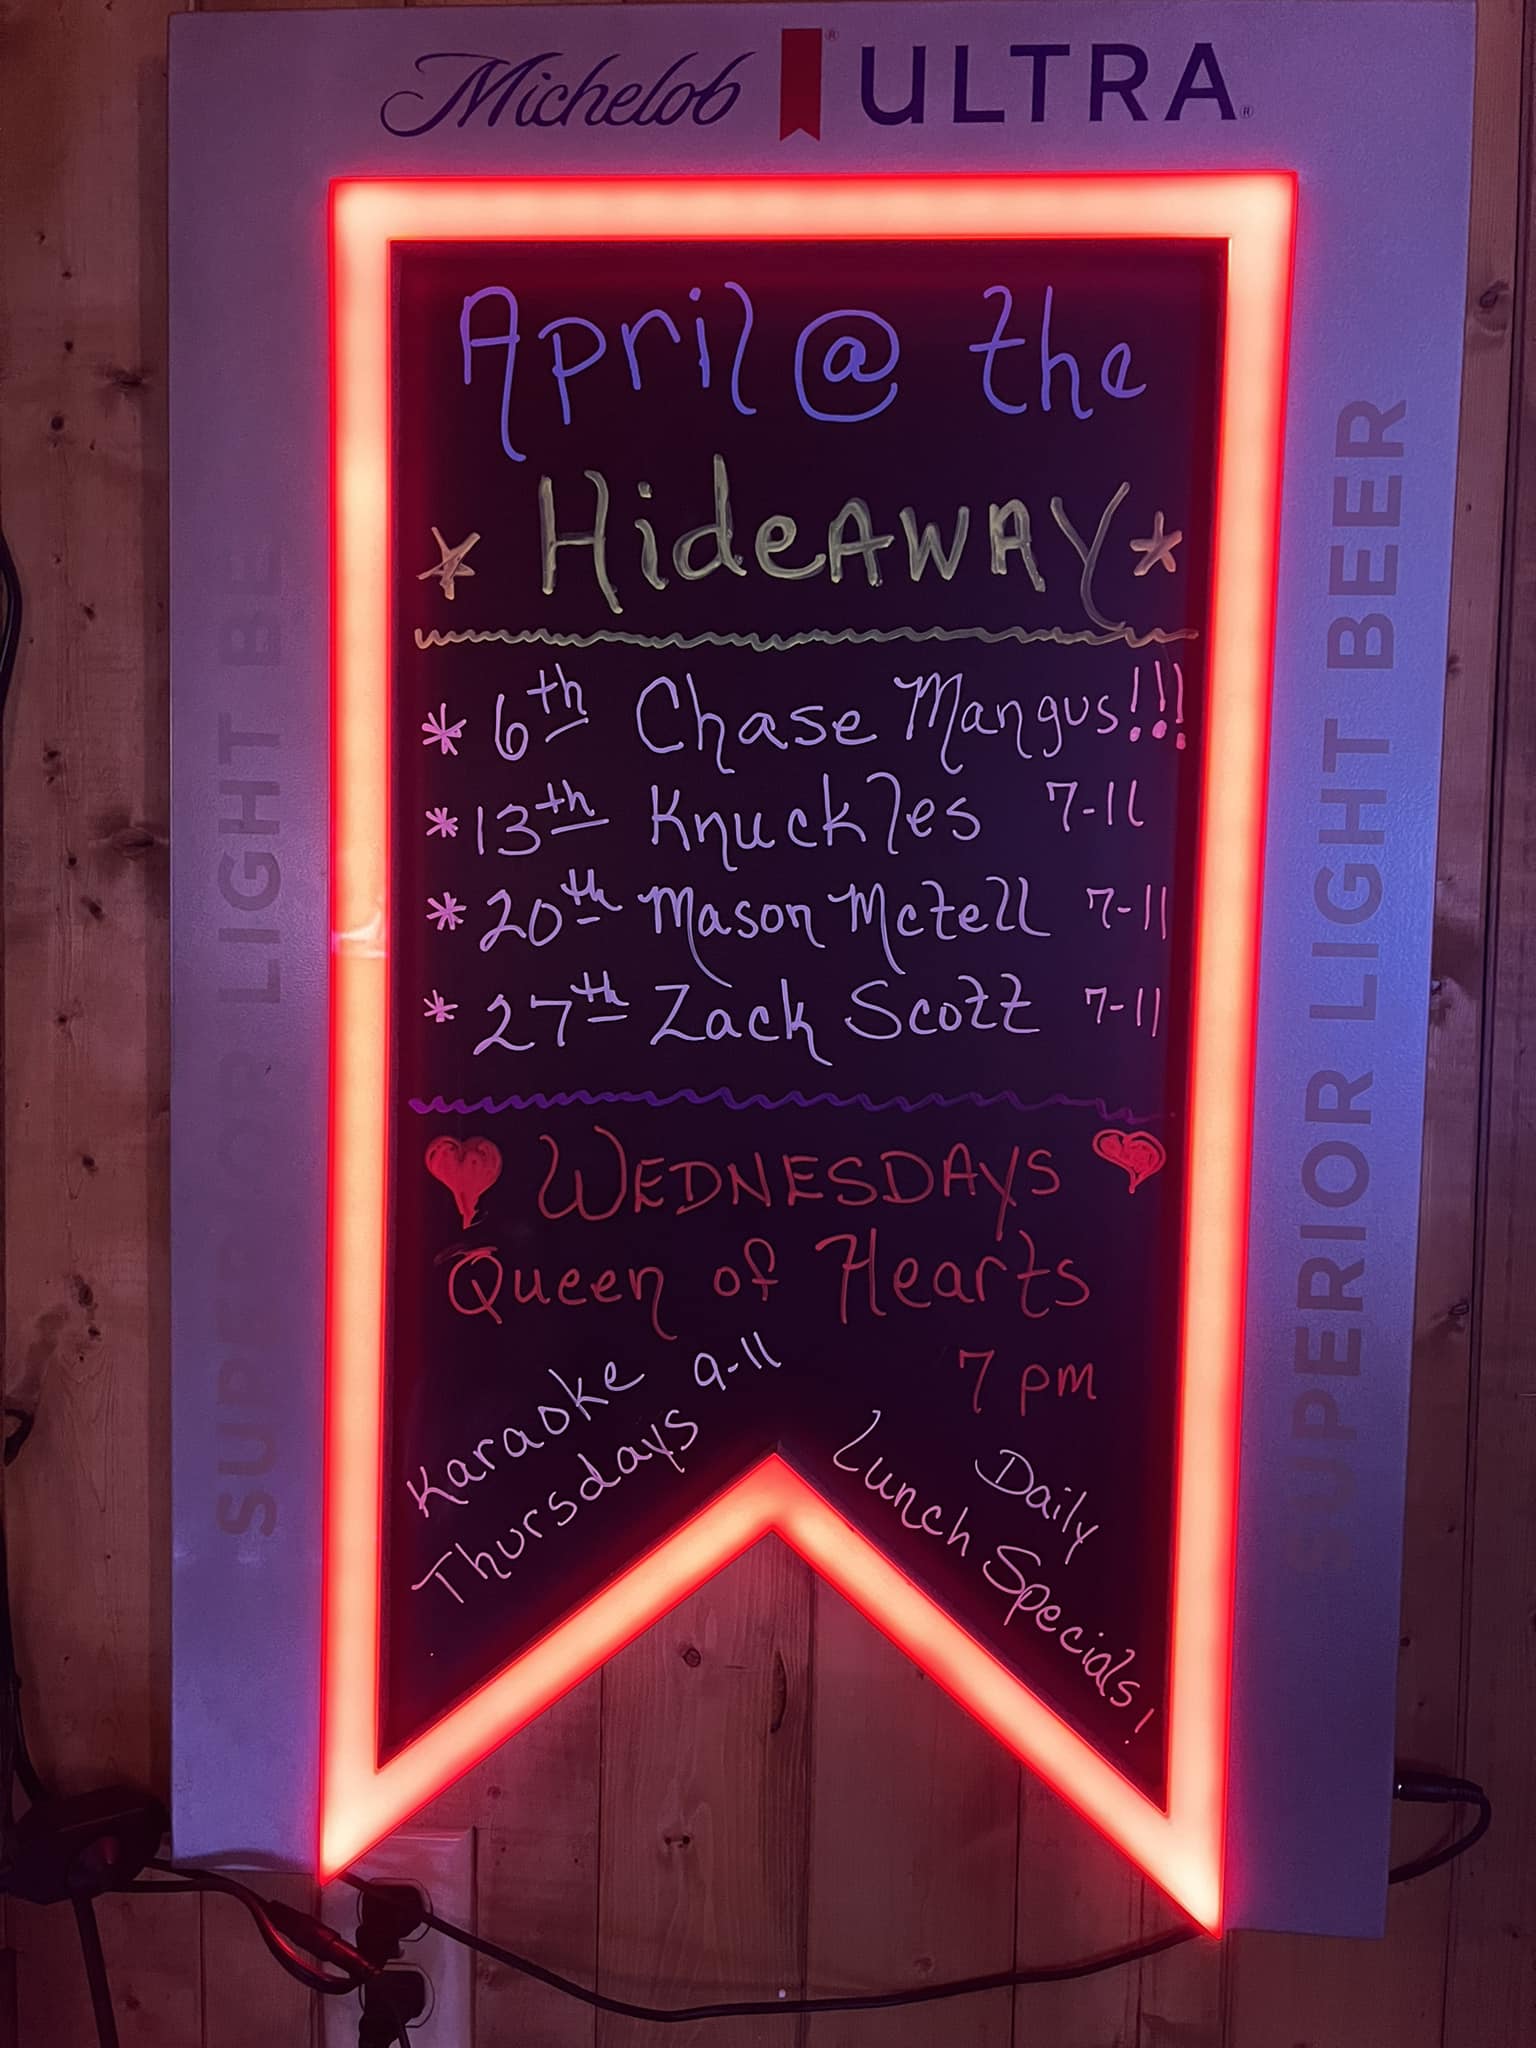 Michelob ULTRA
April @ the
HideAWAY
6th Chase Mangus!!!
13th Knuckles 7-11
20th Mason Mctell 7-11
27th Zack Scott 7-11
WEDNESDAYS
Queen of Hearts
7 pm
Karaoke 9-11
Thursdays
Daily
Lunch Specials!
SUPERIOR LIGHT BE
SUPERIOR LIGHT BEER